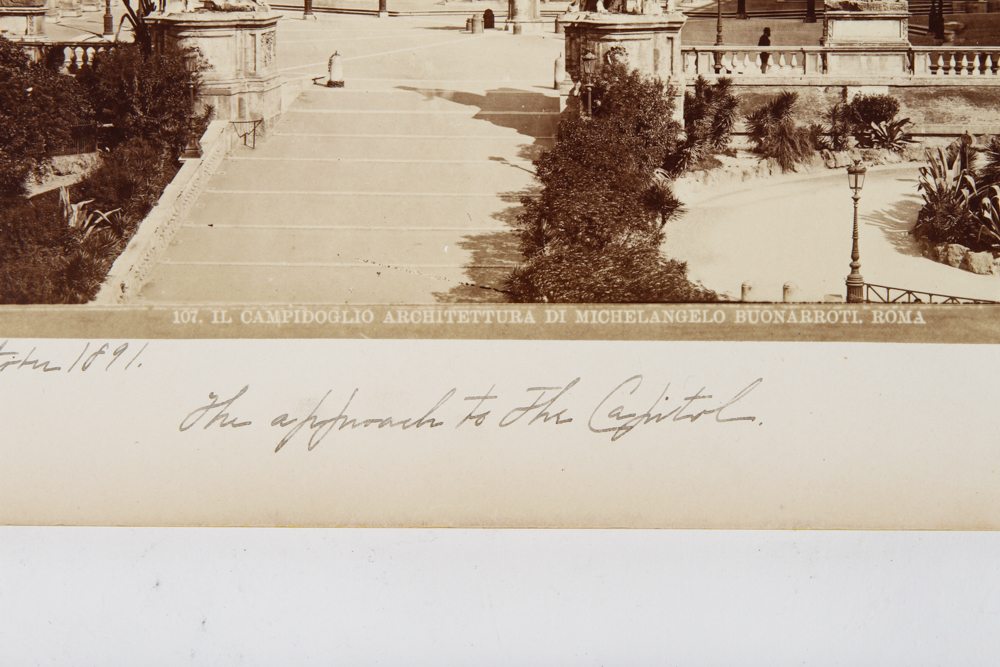 107. IL CAMPIDOGLIO ARCHITETTURA DI MICHELANGELO BUONARROTI. ROMA
1891.
The approach to The Capitol.